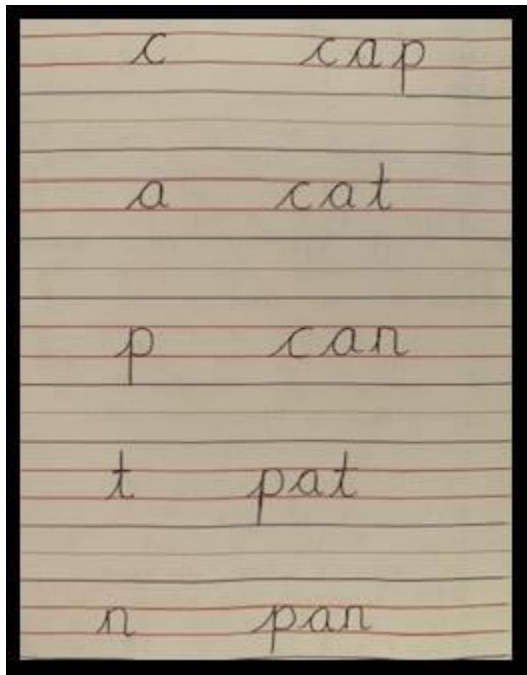 c cap
a cat
p can
t pat
n pan